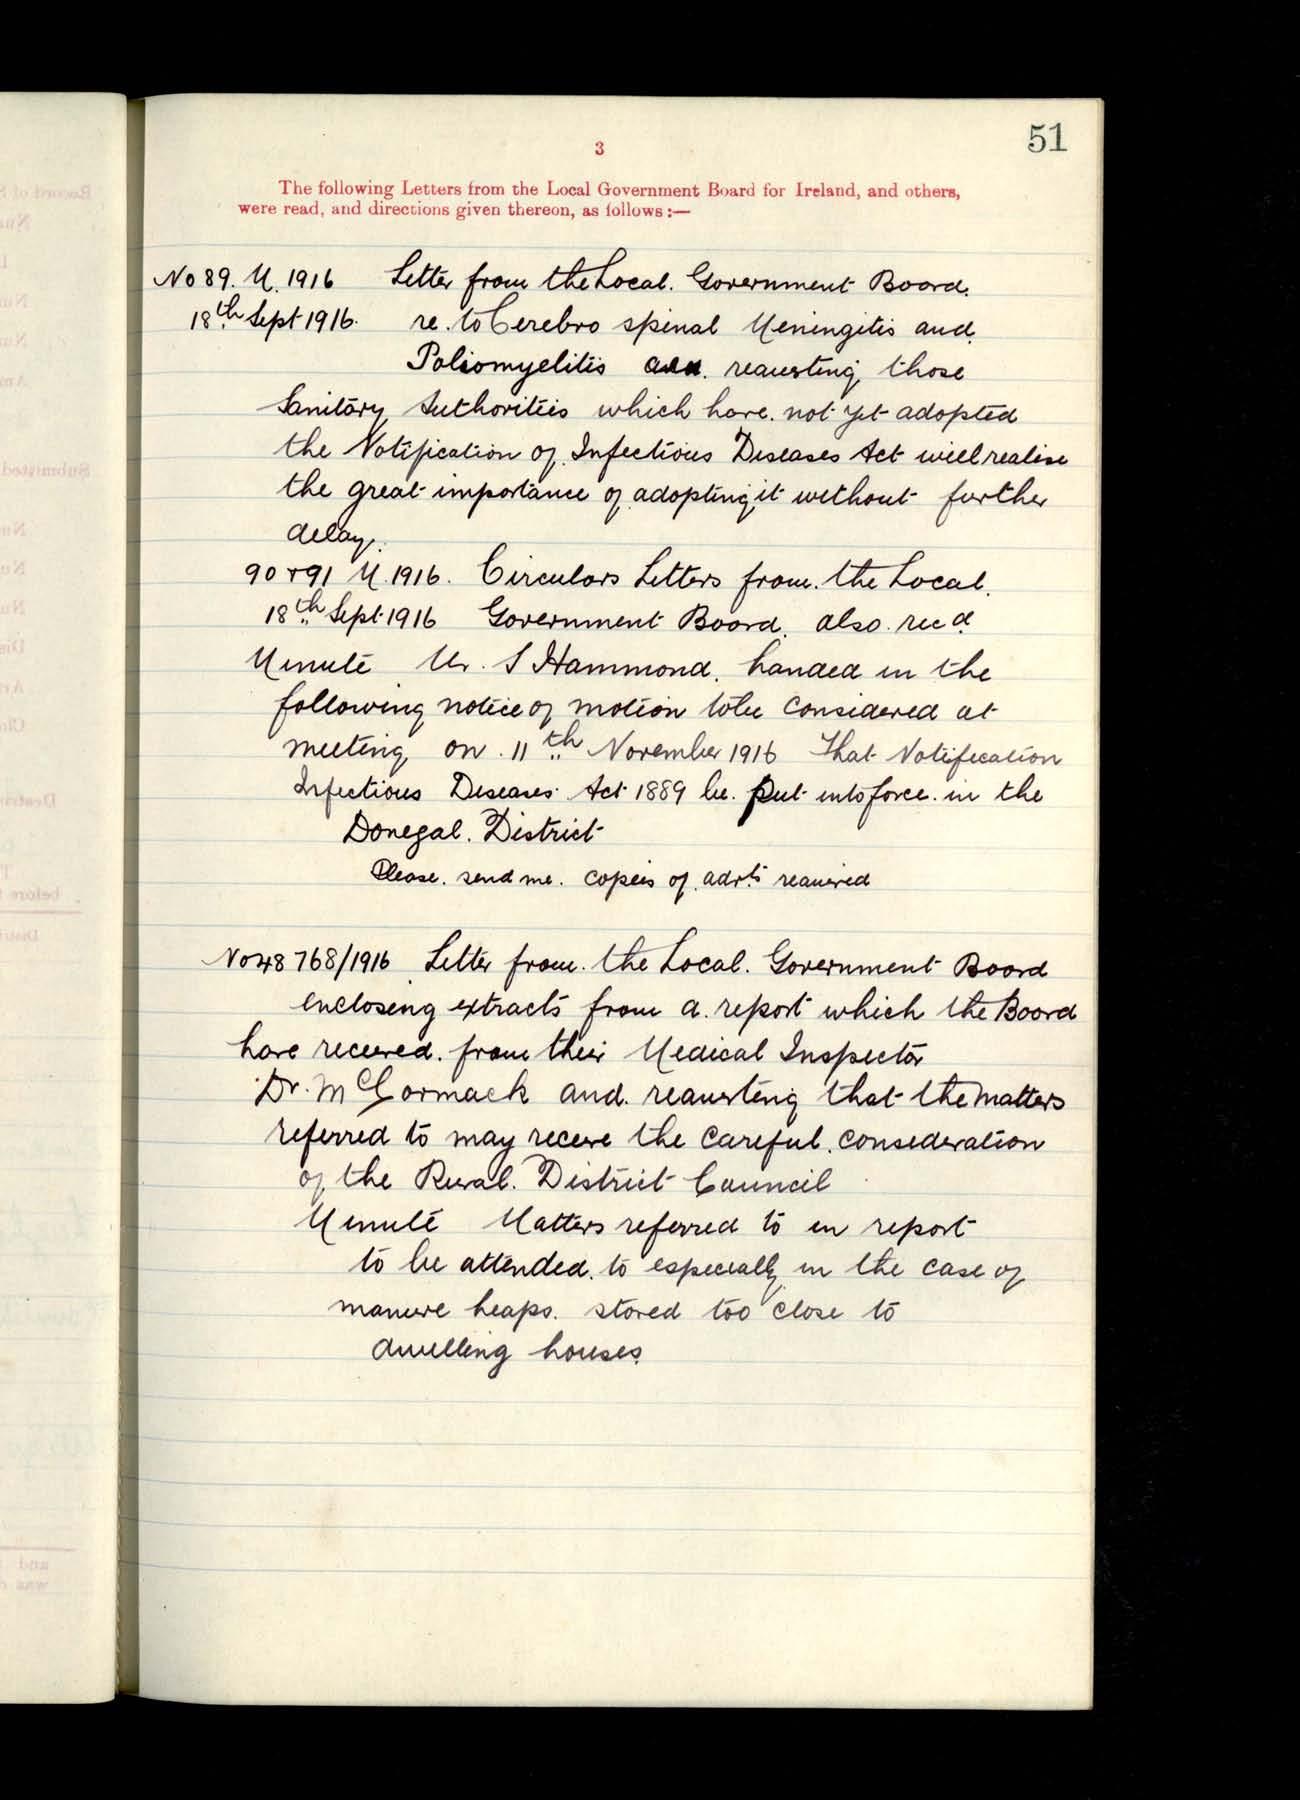 51
3
The following Letters from the Local Government Board for Ireland, and others,
were read, and directions given thereon, as follows :—
No 89. M. 1916 Letter from the Local. Government Board.
18th Sept 1916. re. to Cerebro spinal Meningitis and.
Poliomyelitis requesting those
Sanitary Authorities which have. not yet adopted
the Notification of Infectious Diseases Act will realise
the great importance of adopting it without further
delay.
90 + 91 M. 1916. Circulars Letters from. the Local.
18th Sept. 1916 Government Board. also. recd.
Minute Mr. S Hammond. handed in the
following notice of motion to be considered at
meeting on. 11th November 1916 That Notification
Infectious Diseases Act 1889 be. put into force. in the
Donegal. District
Please. send me. copies of. advts required
No 48768/1916 Letter from. the Local. Government Board
enclosing extracts from a. report which the Board
have received. from their Medical Inspector
Dr. McCormack and. requesting that the matters
referred to may receive the careful. consideration
of the Rural. District Council
Minute Matters referred to in report
to be attended. to especially in the case of
manure heaps. stored too close to
dwelling houses.